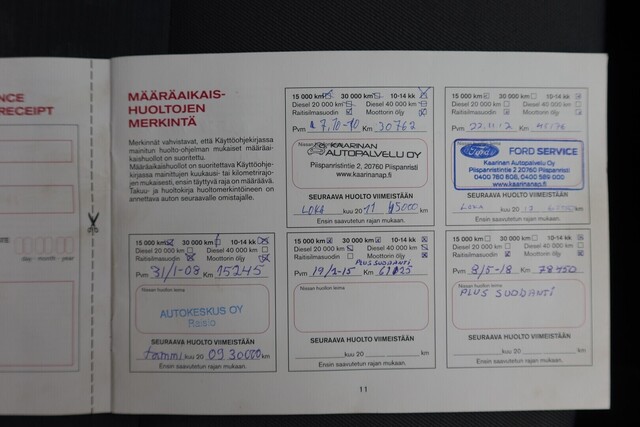 NCE
RECEIPT
day - month - year
MÄÄRÄAIKAIS-
HUOLTOJEN
MERKINTÄ
Merkinnät vahvistavat, että Käyttöohjekirjassa
mainitun huolto-ohjelman mukaiset määräai-
kaishuollot on suoritettu.
Määräaikaishuollot on suoritettava Käyttöohje-
kirjassa mainittujen kuukausi- tai kilometrirajo-
jen mukaisesti, ensin täyttyvä raja on määräävä.
Takuu- ja huoltokirja huoltomerkintöineen on
annettava auton seuraavalle omistajalle.
15 000 km 30 000 km 10-14 kk
Diesel 20 000 km Diesel 40 000 km
Raitisilmasuodin Moottorin öljy
Pvm 7,10-10 Km 30762
KAARINAN
AUTOPALVELU OY
Piispanristintie 2, 20760 Piispanristi
www.kaarinanap.fi
SEURAAVA HUOLTO VIIMEISTÄÄN
LOKA kuu 20 11 45000 km
Ensin saavutetun rajan mukaan.
15 000 km 30 000 km 10-14 kk
Diesel 20 000 km Diesel 40 000 km
Raitisilmasuodin Moottorin öljy
Pvm 22.11.12 Km
Ford FORD SERVICE
Kaarinan Autopalvelu Oy
Piispanristintie 2 20760 Piispanristi
0400 760 608, 0400 589 000
www.kaarinanap.fi
SEURAAVA HUOLTO VIIMEISTÄÄN
LOKA kuu 20 13 km
Ensin saavutetun rajan mukaan.
15 000 km 30 000 km 10-14 kk
Diesel 20 000 km Diesel 40 000 km
Raitisilmasuodin Moottorin öljy
Pvm 31/1-08 Km 15245
Nissan huollon leima
AUTOKESKUS OY
Raisio
SEURAAVA HUOLTO VIIMEISTÄÄN
tammi kuu 20 09 30000 km
Ensin saavutetun rajan mukaan.
15 000 km 30 000 km 10-14 kk
Diesel 20 000 km Diesel 40 000 km
Raitisilmasuodin Moottorin öljy
PLUS SUODANTI
Pvm 19/2-15 Km 61125
Nissan huollon leima
SEURAAVA HUOLTO VIIMEISTÄÄN
kuu 20 km
Ensin saavutetun rajan mukaan.
15 000 km 30 000 km 10-14 kk
Diesel 20 000 km Diesel 40 000 km
Raitisilmasuodin Moottorin öljy
Pvm 8/5-18 Km 78450
Nissan huollon leima
PLUS SUODANTI
SEURAAVA HUOLTO VIIMEISTÄÄN
kuu 20 km
Ensin saavutetun rajan mukaan.
11